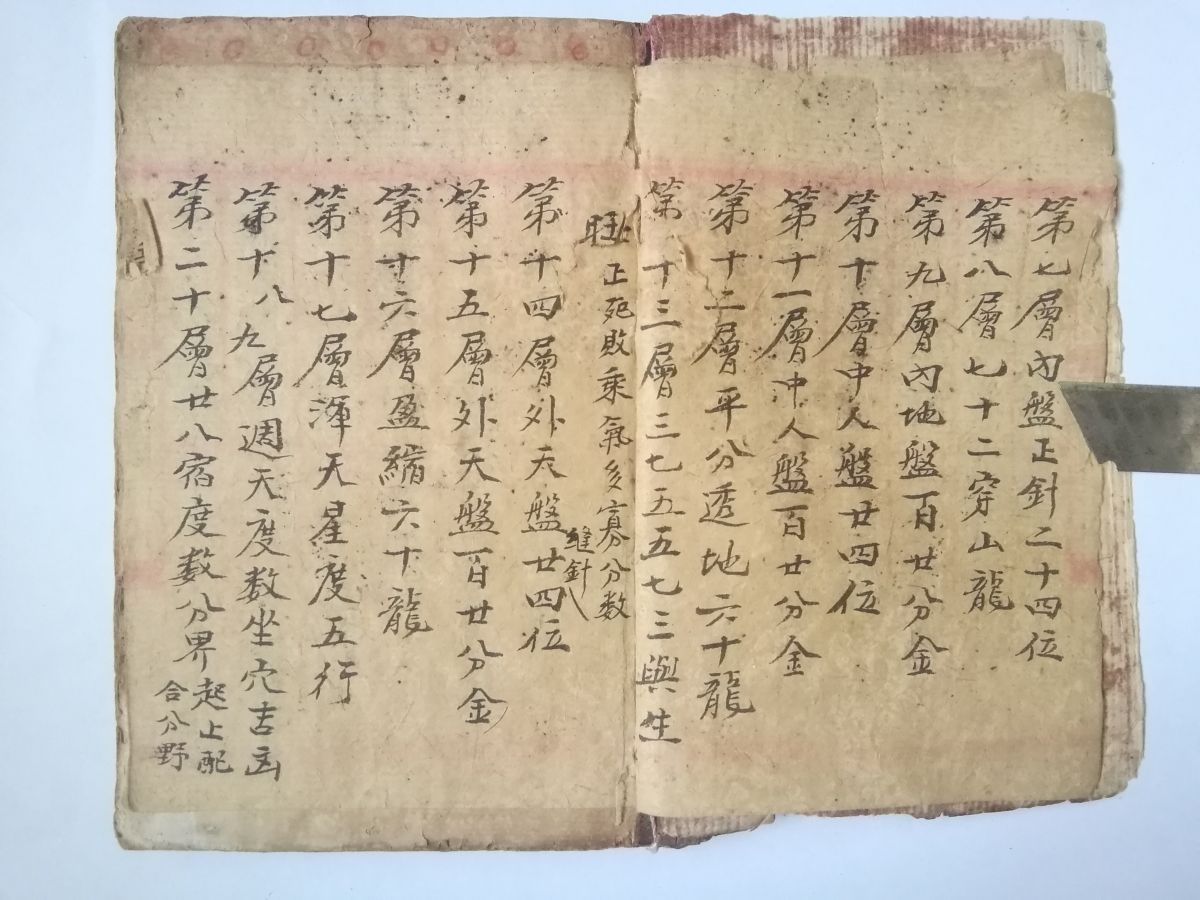 第七層內盤正針二十四位
第八層七十二穿山龍
第九層內地盤百廿分金
第十層中人盤廿四位
第十一層中人盤百廿分金
第十二層平分透地六十龍
第十三層三七五五七三與生
旺正死敗乘氣多寡分数
縫針
第十四層外天盤廿四位
第十五層外天盤百廿分金
第十六層盈縮六十龍
第十七層渾天星度五行
第十八九層週天度数坐穴吉凶
第二十層廿八宿度数分界起上配
合分野